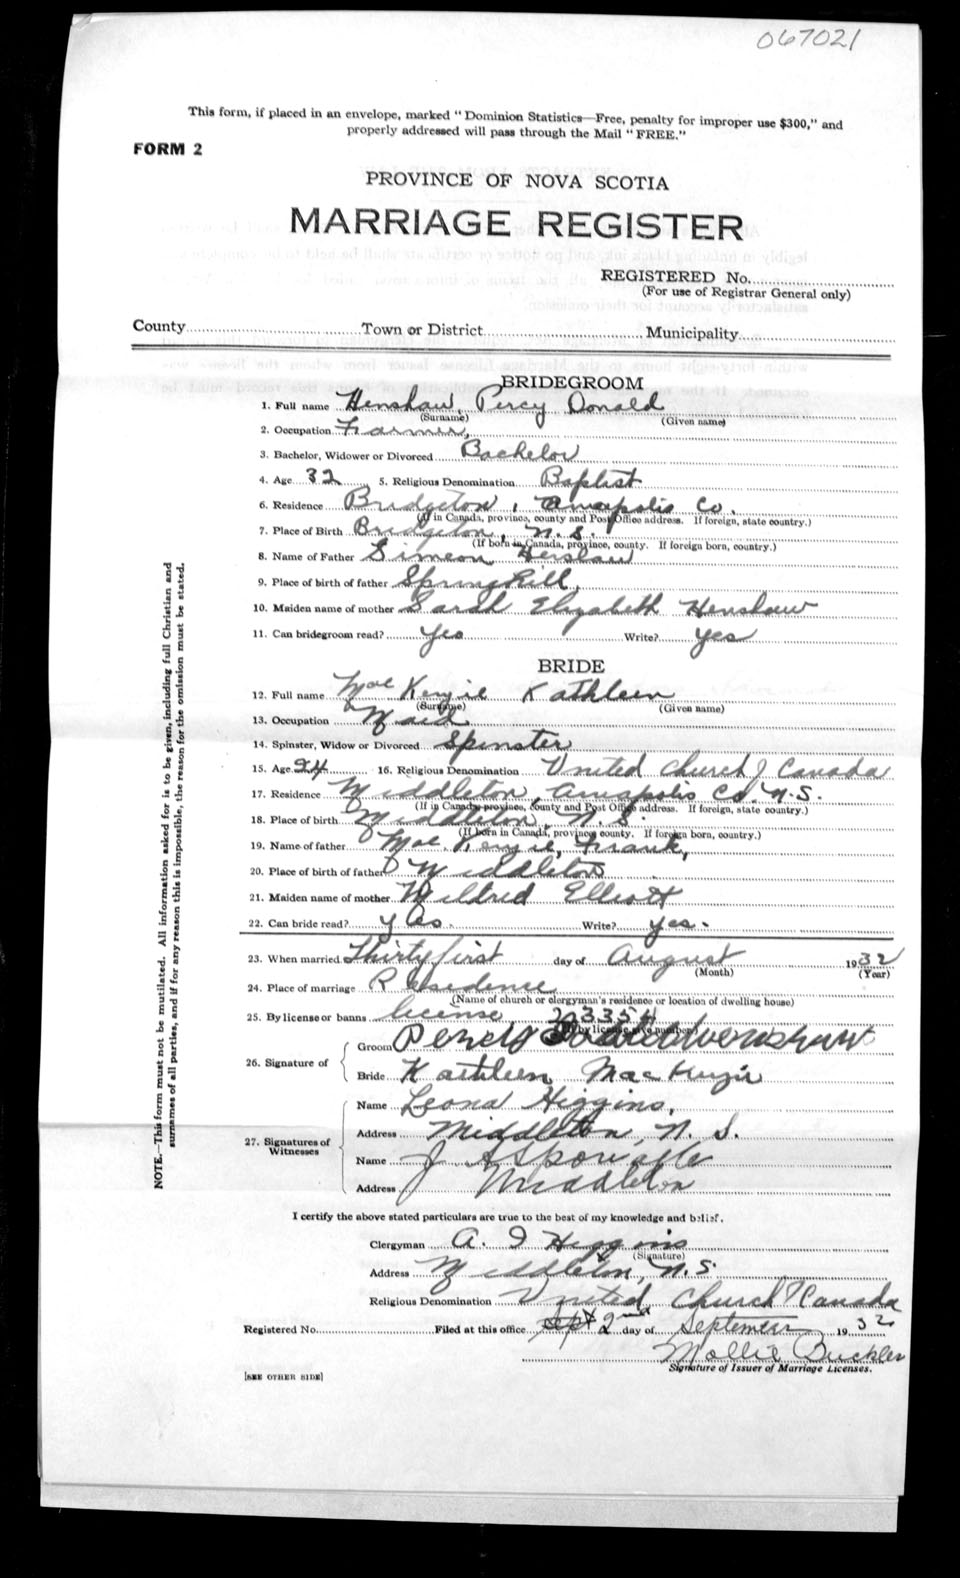 067021
This form, if placed in an envelope, marked "Dominion Statistics—Free, penalty for improper use $300," and
properly addressed will pass through the Mail "FREE."
FORM 2
PROVINCE OF NOVA SCOTIA
MARRIAGE REGISTER
REGISTERED No.
(For use of Registrar General only)
County Town or District Municipality
BRIDEGROOM
1. Full name Henshaw, Percy Donald
(Surname) (Given name)
2. Occupation Farmer,
3. Bachelor, Widower or Divorced Bachelor
4. Age 32 5. Religious Denomination Baptist
6. Residence Bridgeton, Annapolis Co.
(If in Canada, province, county and Post Office address. If foreign, state country.)
7. Place of Birth Bridgeton, N.S.
(If born in Canada, province, county. If foreign born, country.)
8. Name of Father Simeon Henshaw
9. Place of birth of father Springhill,
10. Maiden name of mother Sarah Elizabeth Henshaw
11. Can bridegroom read? Yes Write? yes
BRIDE
12. Full name Mac Kenzie Kathleen
(Surname) (Given name)
13. Occupation Maid
14. Spinster, Widow or Divorced Spinster
15. Age 24 16. Religious Denomination United Church of Canada
17. Residence Middleton, Annapolis Co. N.S.
(If in Canada province, county and Post Office address. If foreign, state country.)
18. Place of birth Middleton, N.S.
(If born in Canada, province county. If foreign born, country.)
19. Name of father Mac Kenzie, Frank,
20. Place of birth of father Middleton
21. Maiden name of mother Mildred Elliott
22. Can bride read? yes. Write? yes.
23. When married Thirty first day of August 1932
(Month) (Year)
24. Place of marriage Residence
(Name of church or clergyman's residence or location of dwelling house)
25. By license or banns license
(If by license give number)
26. Signature of
Groom Percy Donald Henshaw
Bride Kathleen MacKenzie
27. Signatures of Witnesses
Name Leona Higgins.
Address Middleton, N.S.
Name J
Address Middleton
I certify the above stated particulars are true to the best of my knowledge and belief.
Clergyman A. I Higgins
(Signature)
Address Middleton, N.S.
Religious Denomination United Church of Canada
Registered No. Filed at this office Sept 2nd day of September 1932
Mollie Buckler
Signature of Issuer of Marriage Licenses.
[SEE OTHER SIDE]
NOTE.—This form must not be mutilated. All information asked for is to be given, including full Christian and
surnames of all parties, and if for any reason this is impossible, the reason for the omission must be stated.